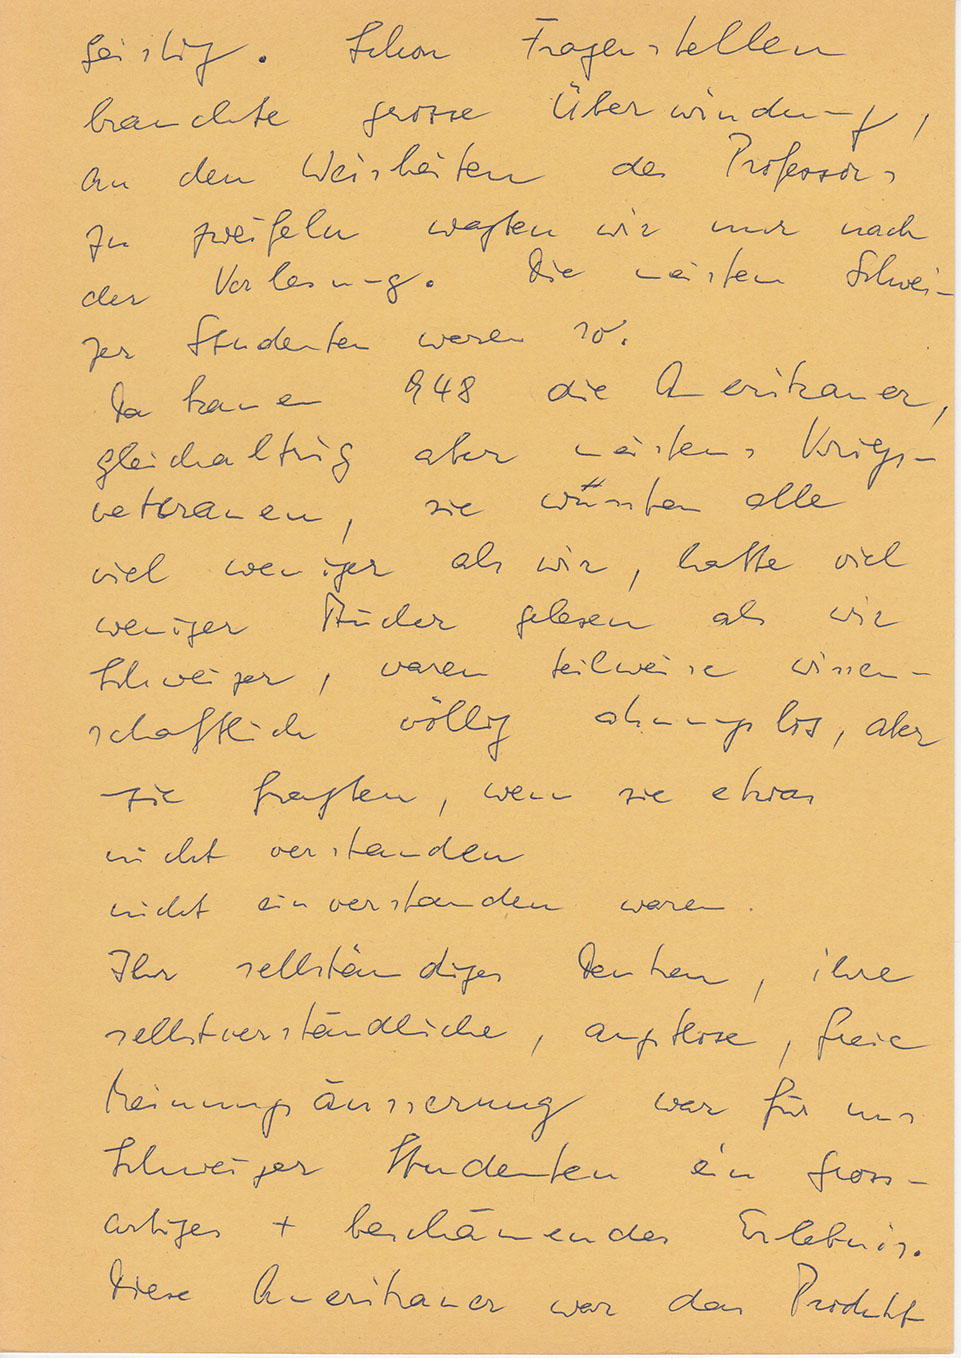 geistig. Schon Fragenstellen
brauchte grosse Überwindung,
an den Weisheiten des Professors
zu zweifeln wagten wir nur nach
der Vorlesung. Die meisten Schwei-
zer Studenten waren so.
Da kamen 948 die Amerikaner,
gleichaltrig aber meistens Kriegs-
veteranen, sie wussten alle
viel weniger als wir, hatte viel
weniger Bücher gelesen als wir
Schweizer, waren teilweise wissen-
schaftlich völlig ahnungslos, aber
sie fragten, wenn sie etwas
nicht verstanden
nicht einverstanden waren.
Ihr selbständiges Denken, ihre
selbstverständliche, angstlose, freie
Meinungsäusserung war für uns
Schweizer Studenten ein gross-
artiges + beschämendes Erlebnis.
Diese Amerikaner war das Produkt